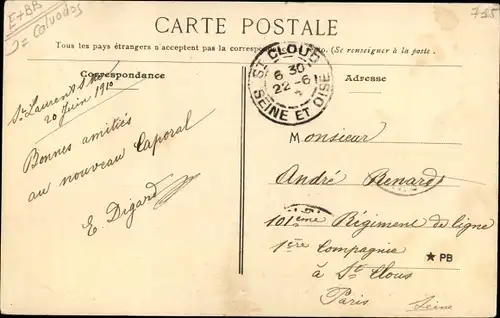 E+BB
= Calvados
725
CARTE POSTALE
Tous les pays étrangers n'acceptent pas la correspondance au recto. (Se renseigner à la poste.
Correspondance
Adresse
ST CLOUD
6 30
22-6
SEINE ET OISE
St Laurent s/Mer
20 Juin 1910
Bonnes amitiés
au nouveau Caporal
E. Digard
Monsieur
André Renard
101ème Régiment de ligne
1ère Compagnie
à St Clous
Paris
Seine
★ PB